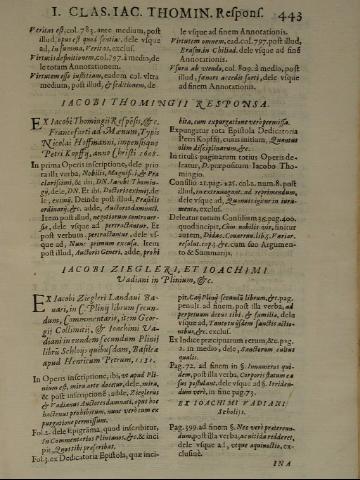 I. CLAS. IAC. THOMIN. Respons. 443
Veritas est, col. 783. ante medium, post
illud, opus est quod sentiu, dele vsque
ad, In summa, Veritas, exclus.
Virtutis definitionem, col. 797. à medio, de
le totam Annotationem.
Virtutem esse iustitiam, eadem col. vltra
medium, post illud, & seditionem, de
le vsque ad finem Annotationis.
Virtutem omnem, ead. col. 797. post illud,
Erasm. in Chiliad. dele vsque ad finẽ
Annotationis.
Vsura ab vtendo, col. 809. à medio, post
illud, fœnore accedit sorti, dele vsque
ad finem Annotationis.
IACOBI THOMINGII RESPONSA.
EX Iacobi Thomingii Respõsis, &c.
Francofurti ad Mœnum, Typis
Nicolai Hoffmanni, impensisque
Petri Kopffij, anno Christi 1608.
In prima Operis inscriptione, dele pri-
ma illa verba, Nobilis, Magnifi. & Præ
clarissimi, & ibi, DN. Iacobi Thomin-
gii, dele, DN. Et ibi, Doctoris eximij, de
le, eximij. Deinde post illud, Præsidis
ordinarij, &c. adde, Auctoris damnati.
Item post illud, negotiorum controuer-
siæ, dele vsque ad pertractantur. Et
post verbum pertractantur, dele vs-
que ad, Nunc primum excusa. Item
post illud, Auctoris Generi, adde, prohi
bita, cum expurgatione verò permissa.
Expungatur tota Epistola Dedicatoria
Petri Kopffij, cuius initium, Quantus
olim disciplinarum &c.
In titulis paginarum totius Operis de-
leatur, & præpositum Iacobo Tho-
mingio.
Consilio 12. pag. 126. col. num. 8. post
illud, in extenuagant. ad reprimendum,
dele vsque ad, Quamuis igitur in iura-
mento, exclus.
Deleatur totum Consilium 35. pag. 400.
quod incipit, Cùm nobilis quis, finitur
autem, Didac. Couarruu. lib. 3. Variar.
resolut. cap. 3. &c. cum suo Argumen-
to & Summarijs.
IACOBI ZIEGLERI, ET IOACHIMI
Vadiani in Plinium, &c.
EX Iacobi Ziegleri Landaui Ba-
uari, in C. Plinij librum secun-
dum, Commentario, item Geor-
gij Collimitij, & Ioachimi Va-
diani in eundem secundum Plinij
librũ Scholijs quibusdam, Basileæ
apud Henricum Petrum, 1531.
In Operis inscriptione, ibi, vt apud Pli-
nium est, mira arte docetur, dele, mira,
& post inscriptionẽ, adde, Zieglerus
& Vadianus Auctores damnati, opus hoc
hactenus prohibitum, nunc verò cum ex
purgatione permissum.
Fol. 2. dele Epigrãma, quod inscribitur,
In Commentarios Plinianos, &c. & inci
pit, Quot tibi præscribat.
Fol. 3. ex Dedicatoria Epistola, quæ inci-
pit, Caij Plinij secundi librum, &c. pag.
penult. ad finem, post illa verba, ad
perpetuum decus tibi, & familiæ, dela
vsque ad, Tantis tuisdem sanctis actio-
nibus, &c. exclus.
Ex Indice præcipuarum rerum, &c. pag.
2. in medio, dele, Sanctorum cultus
qualis.
Pag. 72. ad finem in §. Immaneius qui-
dem, post illa verba, Corporis statum ex
sua postulant, dele vsque ad §. Irriden-
dum verò, in fine pag. 73.
EX IOACHIMI VADIANI
Scholijs.
Pag. 399. ad finem §. Nec verò præterun-
dum, post illa verba, acuitia rideret,
dele vsque ad, vsque aquinoctio, ex-
clusiuè.
INA